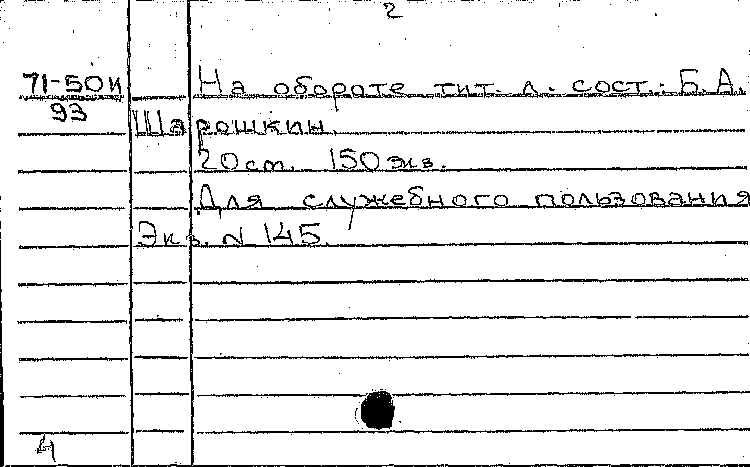 2
71-50И На обороте тит. л. сост.: Б.А.
93 Шарошкин.
20 см. 150 экз.
Для служебного пользования
Экз. N 145.
4